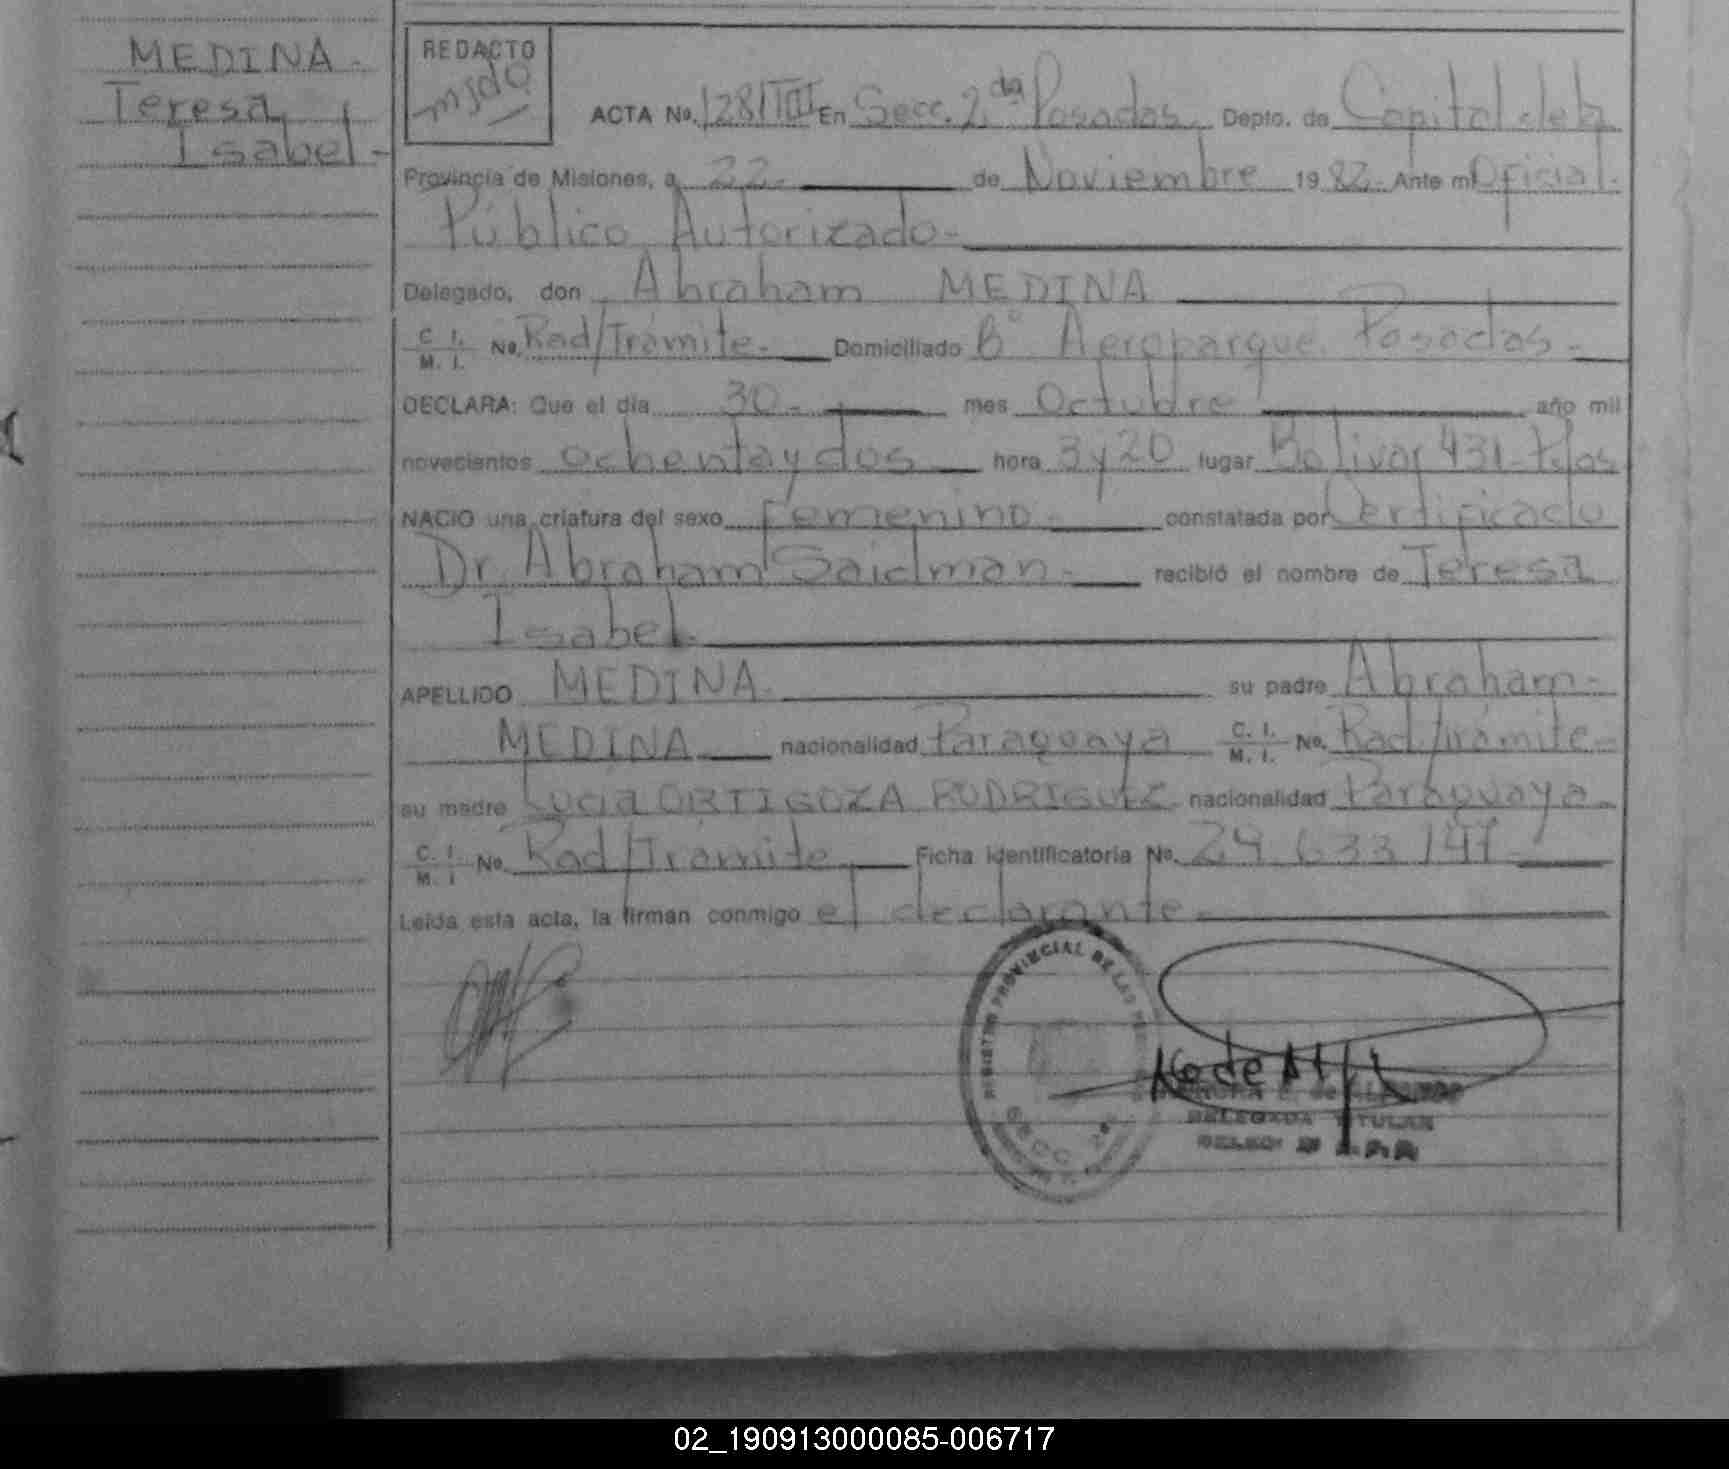 MEDINA.
Teresa
Isabel.-
REDACTO
ACTA No. 1281 TIII En Secc. 2da Posadas. Depto. de Capital de la
Provincia de Misiones, a 22.- de Noviembre 1982.- Ante mi Oficial
Público Autorizado.-
Delegado, don Abraham MEDINA
C. I. M. I. No. Rad/Trámite.- Domiciliado B° Aeroparque. Posadas.-
DECLARA: Que el día 30.- mes Octubre año mil
novecientos ochenta y dos hora 3 y 20 lugar Bolivar 431- Pdas
NACIO una criatura del sexo Femenino.- constatada por Certificado
Dr. Abraham Saidman.- recibió el nombre de Teresa
Isabel.
APELLIDO MEDINA.- su padre Abraham.-
MEDINA nacionalidad Paraguaya C. I. M. I. No. Rad/Trámite.-
su madre Lucia ORTIGOZA RODRIGUEZ nacionalidad Paraguaya.-
C. I. M. I No. Rad/Trámite Ficha identificatoria No. 29.633.147.-
Leída esta acta, la firman conmigo el declarante.-
REGISTRO PROVINCIAL DE LAS
SECC. 2da
DELEGADA TITULAR
02_190913000085-006717